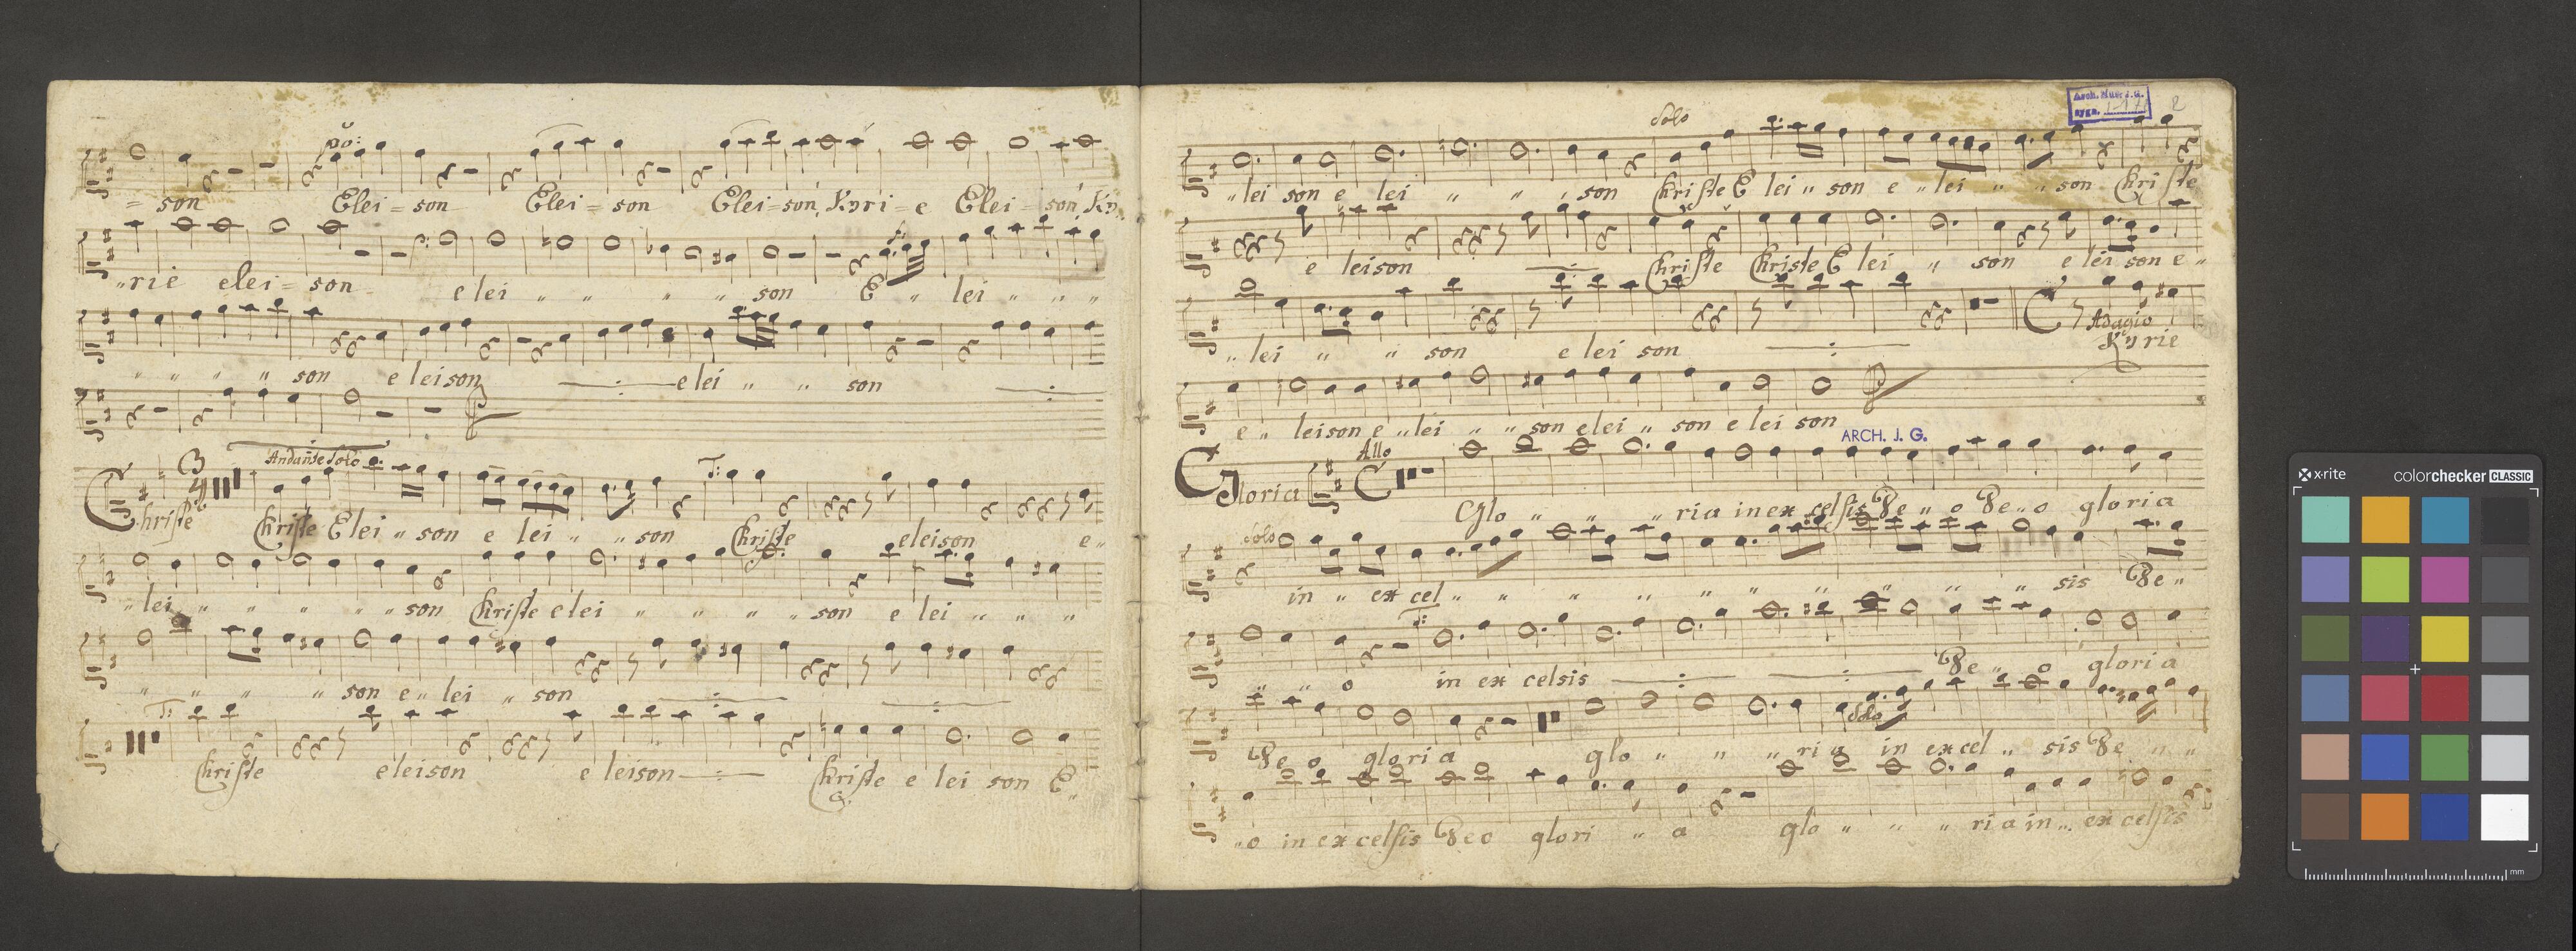 po:
= son Elei = son Elei = son Elei = son, Kyri = e Elei = son, Ky„
„rie elei = son e lei „ „ „ „ son E „ lei „ „ „
„ „ „ „ son e leison e lei „ „ son
Andante Solo
Christe Christe Elei „ son e lei „ „ son Christe eleison e„
T:
„lei „ „ „ „ „ son Christe e lei „ „ „ „ son e lei „ „ „
„ „ „ „ son e „ lei „ son
T:
Christe eleison e leison Christe e lei son E„
Arch. Muz. J. G.
sygn.
2
Solo
„lei son e lei „ „ „ son Christe E lei „ son e „ lei „ „ son Christe
e leison Christe Christe E lei „ son e lei son e „
„ lei „ „ son e lei son Adagio Kyrie
e „ leison e „ lei „ „ son e lei „ son e lei son
ARCH. J. G.
Gloria All̲o
Glo „ „ „ ria in excelsis De „ o De „ o gloria
Solo
in „ ex cel „ „ „ „ „ „ „ „ „ „ sis De „
T:
„ „ o in ex celsis De „ o gloria
Solo
De o gloria glo „ „ „ ri a in excel „ sis De „ „
„ o in ex celsis Deo glori „ a glo „ „ „ ria in „ ex celsis
x-rite colorchecker CLASSIC
mm